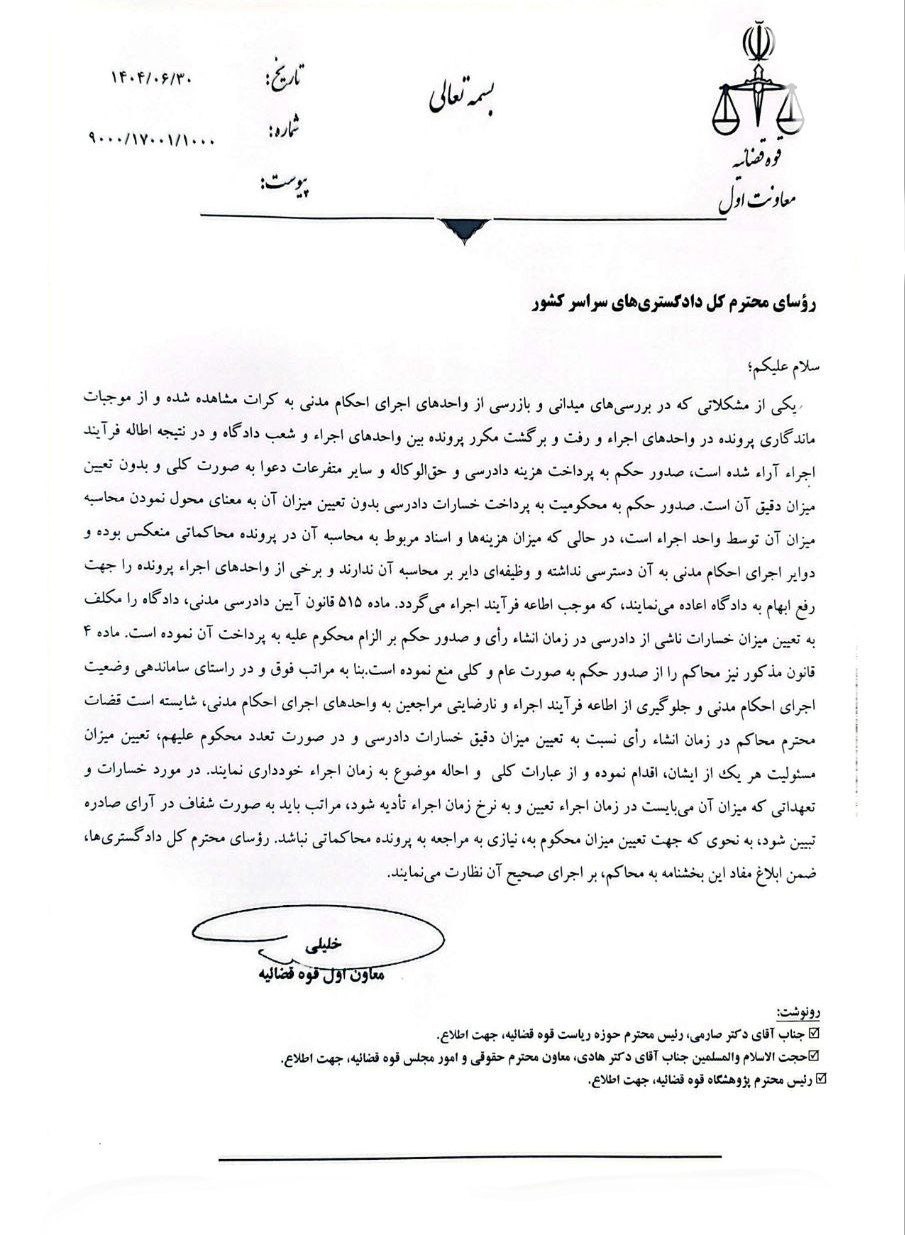 بسمه تعالی
قوه قضائیه
معاونت اول
تاریخ: ۱۴۰۴/۰۶/۳۰
شماره: ۹۰۰۰/۱۷۰۰۱/۱۰۰۰
پیوست:
رؤسای محترم کل دادگستری‌های سراسر کشور
سلام علیکم؛
یکی از مشکلاتی که در بررسی‌های میدانی و بازرسی از واحدهای اجرای احکام مدنی به کرات مشاهده شده و از موجبات
ماندگاری پرونده در واحدهای اجراء و رفت و برگشت مکرر پرونده بین واحدهای اجراء و شعب دادگاه و در نتیجه اطاله فرآیند
اجراء آراء شده است، صدور حکم به پرداخت هزینه دادرسی و حق‌الوکاله و سایر متفرعات دعوا به صورت کلی و بدون تعیین
میزان دقیق آن است. صدور حکم به محکومیت به پرداخت خسارات دادرسی بدون تعیین میزان آن به معنای محول نمودن محاسبه
میزان آن توسط واحد اجراء است، در حالی که میزان هزینه‌ها و اسناد مربوط به محاسبه آن در پرونده محاکماتی منعکس بوده و
دوایر اجرای احکام مدنی به آن دسترسی نداشته و وظیفه‌ای دایر بر محاسبه آن ندارند و برخی از واحدهای اجراء پرونده را جهت
رفع ابهام به دادگاه اعاده می‌نمایند، که موجب اطاعه فرآیند اجراء می‌گردد. ماده ۵۱۵ قانون آیین دادرسی مدنی، دادگاه را مکلف
به تعیین میزان خسارات ناشی از دادرسی در زمان انشاء رأی و صدور حکم بر الزام محکوم علیه به پرداخت آن نموده است. ماده ۴
قانون مذکور نیز محاکم را از صدور حکم به صورت عام و کلی منع نموده است.بنا به مراتب فوق و در راستای ساماندهی وضعیت
اجرای احکام مدنی و جلوگیری از اطاعه فرآیند اجراء و نارضایتی مراجعین به واحدهای اجرای احکام مدنی، شایسته است قضات
محترم محاکم در زمان انشاء رأی نسبت به تعیین میزان دقیق خسارات دادرسی و در صورت تعدد محکوم علیهم، تعیین میزان
مسئولیت هر یک از ایشان، اقدام نموده و از عبارات کلی و احاله موضوع به زمان اجراء خودداری نمایند. در مورد خسارات و
تعهداتی که میزان آن می‌بایست در زمان اجراء تعیین و به نرخ زمان اجراء تأدیه شود، مراتب باید به صورت شفاف در آرای صادره
تبیین شود، به نحوی که جهت تعیین میزان محکوم به، نیازی به مراجعه به پرونده محاکماتی نباشد. رؤسای محترم کل دادگستری‌ها،
ضمن ابلاغ مفاد این بخشنامه به محاکم، بر اجرای صحیح آن نظارت می‌نمایند.
خلیلی
معاون اول قوه قضائیه
رونوشت:
☑ جناب آقای دکتر صارمی، رئیس محترم حوزه ریاست قوه قضائیه، جهت اطلاع.
☑حجت الاسلام والمسلمین جناب آقای دکتر هادی، معاون محترم حقوقی و امور مجلس قوه قضائیه، جهت اطلاع.
☑ رئیس محترم پژوهشگاه قوه قضائیه، جهت اطلاع.